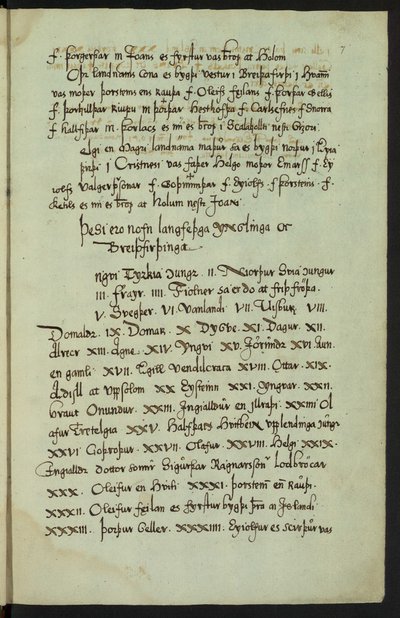 f. þorgerþar m Joans es fyrstur vas bṫop at Holom
Oþr landnams cona es bygþi vestur i Breiþafirþi i Hvam
vas moþer þorsteins ens Rauþa f. Oleifs feilans f. þorþar Gellis
f. þorhilldar Riupu m þorþar Hesthofþa f. Carlsefnes f Snorra
f hallfriþar m. þorlacs es nu es bṫop i Scalahollti nesti Gizori
Elgi en Magri landnama maþur sa es bygþi norþur i Eyia
firþi i Cristnesi vas faþer Helgo moþor Einarss f. Ey
iolfs Valgerþssonar f. Goþmundar f. Eyiolfs f. þorsteins. f.
Ketils es nu es bṫop at Holum nesti Joani
þesi ero nofn langfeþga ynglinga oc
Breiþfirþinga
ngvi Tyrkia Jungr. II. Niorþur Svia Jungur
III. Frayr. IIII. Fiolner sa er do at friþ fróþa.
V. Svegþer. VI. Vanlandi VII. Uisbur VIII.
Domaldr. IX. Domar X Dygve. XI. Dagur. XII.
Alrecr XIII. Agne. XIV. Yngvi XV. Jörundr XVI. Aun
en gamli XVII. Egill Vendilcraca XVIII. Ottar. XIX.
Adisll at Uppsolom XX Eysteinn XXI. Yngvar. XXII.
braut Onundur. XXIII. Ingialldur en illraþi. XXIIII Ol
afur Tretelgia XXV. Halfdars Hvitbein Upplendinga Jungr
XXVI Goþroþur. XXVII. Olafur. XXVIII. Helgi XXIX.
Ingialldr dottor sonur Sigurþar Ragnarssonr Lodbrócar
XXX. Oleifur en Hviti XXXI. þorsteinn en Rauþi.
XXXII. Oleifur feilan es fyrstur bygþi þra an Islandi
XXXIII. þorþur Geller. XXXIIII. Eyiolfur es scirþur vas